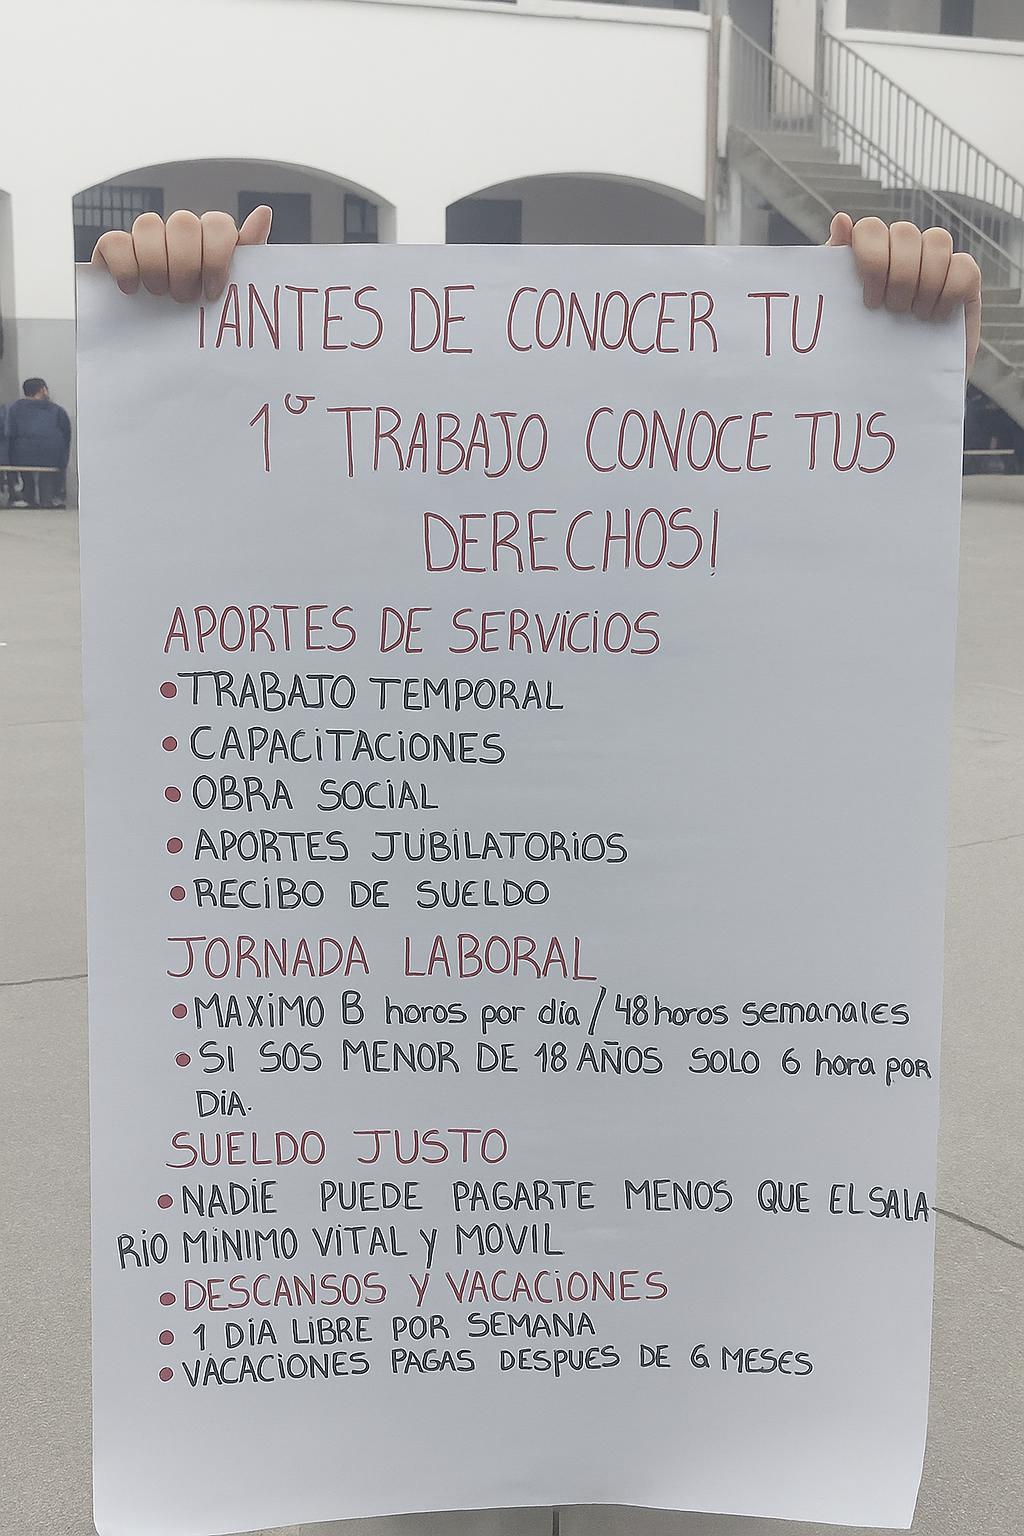 ¡ANTES DE CONOCER TU
1º TRABAJO CONOCE TUS
DERECHOS!
APORTES DE SERVICIOS
• TRABAJO TEMPORAL
• CAPACITACIONES
• OBRA SOCIAL
• APORTES JUBILATORIOS
• RECIBO DE SUELDO
JORNADA LABORAL
• MAXIMO 8 horos por día / 48 horos semanales
• SI SOS MENOR DE 18 AÑOS SOLO 6 hora por
DÍA.
SUELDO JUSTO
• NADIE PUEDE PAGARTE MENOS QUE EL SALA
RIO MINIMO VITAL y MOVIL
• DESCANSOS Y VACACIONES
• 1 DÍA LIBRE POR SEMANA
• VACACIONES PAGAS DESPUES DE 6 MESES